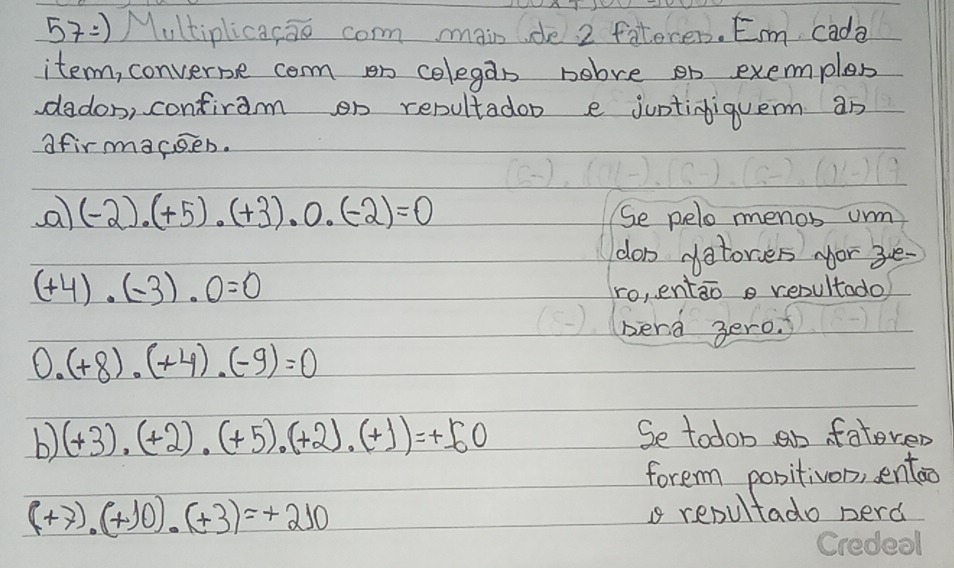 57=) Multiplicação com mais de 2 fatores. Em cada
item, converse com os colegas sobre os exemplos
dados, confiram os resultados e justifiquem as
afirmações.
a) (-2).(+5).(+3).0.(-2)=0
Se pelo menos um
dos fatores for ze-
ro, então o resultado
será zero.
(+4).(-3).0=0
0.(+8).(+4).(-9)=0
b) (+3).(+2).(+5).(+2).(+1)=+60
Se todos os fatores
forem positivos, então
o resultado será
(+7).(+10).(+3)=+210
Credeal